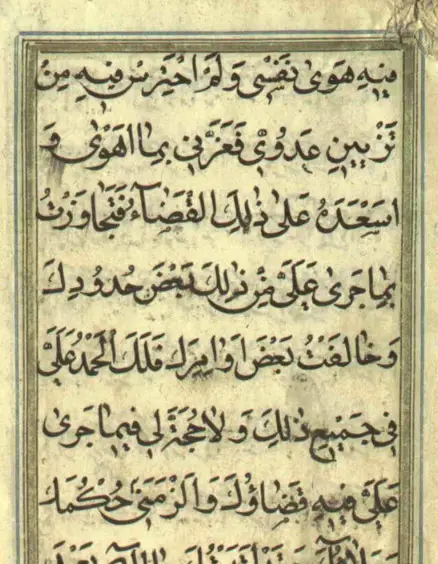 فِيهِ هَوىٰ نَفْسٖي وَلَمْ اَحْتَرِسْ فِيهِ مِنْ
تَزْيٖينِ عَدُوّٖي فَغَرَّنٖي بِمٰا اَهْوىٰ وَ
اَسْعَدَهُ عَلىٰ ذٰلِكَ الْقَضٰآءُ فَتَجٰاوَزْتُ
بِمٰا جَرىٰ عَلَىَّ مِنْ ذٰلِكَ بَعْضَ حُدُودِكَ
وَ خٰالَفْتُ بَعْضَ اَوٰامِرِكَ فَلَكَ الْحَمْدُ عَلَىَّ
فٖي جَمٖيعِ ذٰلِكَ وَ لٰا حُجَّةَ لٖي فٖيمٰا جَرىٰ
عَلَىَّ فٖيهِ قَضٰاؤُكَ وَ اَلْزَمَنٖي حُكْمُكَ